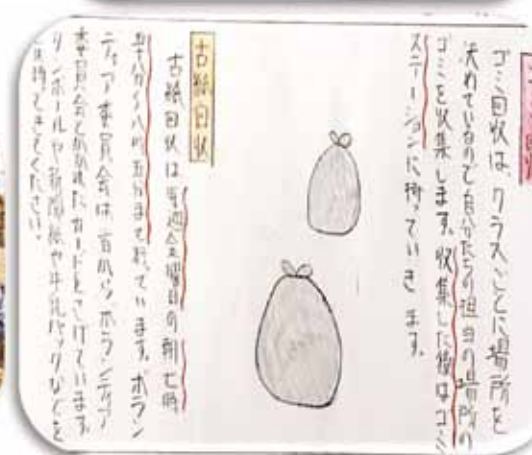 ゴミ回収は、クラスごとに場所を
決めているので自分たちの担当の場所の
ゴミを収集します。収集した後はゴミ
ステーションに持っていきます。
古紙回収
古紙回収は毎週金曜日の朝七時
五十分から八時五分まで行っています。ボラン
ティア委員会は、首からボランティア
委員会とかかれたカードをさげています。
ダンボールや新聞紙や牛乳パックなどを
持ってきてください。